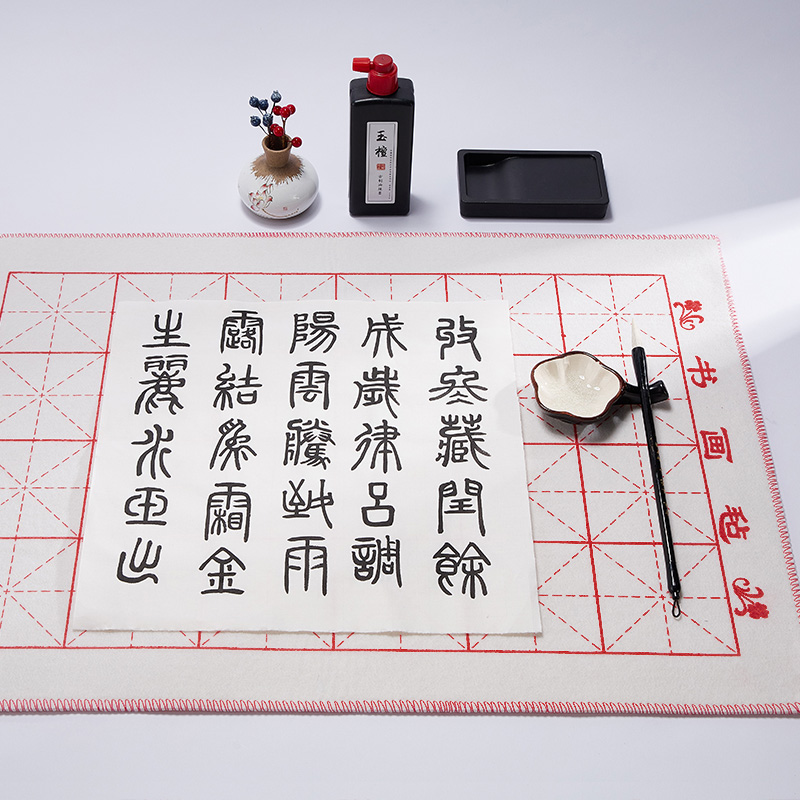 玉檀
收冬藏閏餘
成歲律呂調
陽雲騰致雨
露結為霜金
生麗水玉出
书画毡